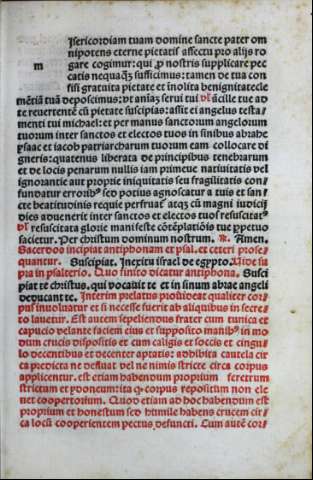 Isericordiam tuam domine sancte pater om
nipotens eterne pietatis affectu pro alijs ro
m
gare cogimur: qui ꝓ nostris supplicare pec
catis nequaq̄ʒ sufficimus: tamen de tua con
fisi gratuita pietate et inolita benignitatecle
mētiā tuā deposcimus: vt aniaʒ serui tui vl̄ ācille tue ad
te reuertentē cū pietate suscipias: assit ei angelus testa
menti tui michael: et per manus sanctorum angelorum
tuorum inter sanctos et electos tuos in sinibus abrahe
ysaac et iacob patriarcharum tuorum eam collocare di
gneris: quatenus liberata de principibus tenebrarum
et de locis penarum nullis iam primeue natiuitatis vel
ignorantie aut proprie iniquitatis seu fragilitatis con
fundatur errorib⁹ sed potius agnoscatur a tuis et san
cte beatitudinis requie perfruat᷑ atqʒ cū magni iudicij
dies aduenerit inter sanctos et electos tuos resuscitat᷑
vl̄ resuscitata glorie manifeste cōtēplatiōis tue ꝑpetuo
sacietur. Per christum dominum nostrum. ℟. Amen.
Sacerdos incipiat antiphonam et psal. et ceteri prose
quantur. Suscipiat. Inexitu israel de egypto. Vide su
pra in psalterio. Quo finito dicatur antiphona. Susci
piat te christus, qui vocauit te et in sinum abrae angeli
deducant te. Interim prelatus prouideat qualiter cor
pus inuoluatur et si necesse fuerit ab aliquibus in secre
to lauetur. Est autem sepeliendus frater cum tunica et
capucio velante faciem eius et supposito manib⁹ in mo
dum crucis dispositis et cum caligis et soccis et cingu
lo decentibus et decenter aptatis: adhibita cautela cir
ca predicta ne desuat vel ne nimis stricte circa corpus
applicentur. est etiam habendum proprium feretrum
strictum et ydoneum ita ꝙ corpus repositum non ele
net coopertorium. Quod etiam ad hoc habendum est
proprium et honestum sed humile habens crucem cir
ca locū cooperientem pectus defuncti. Cum autē cor